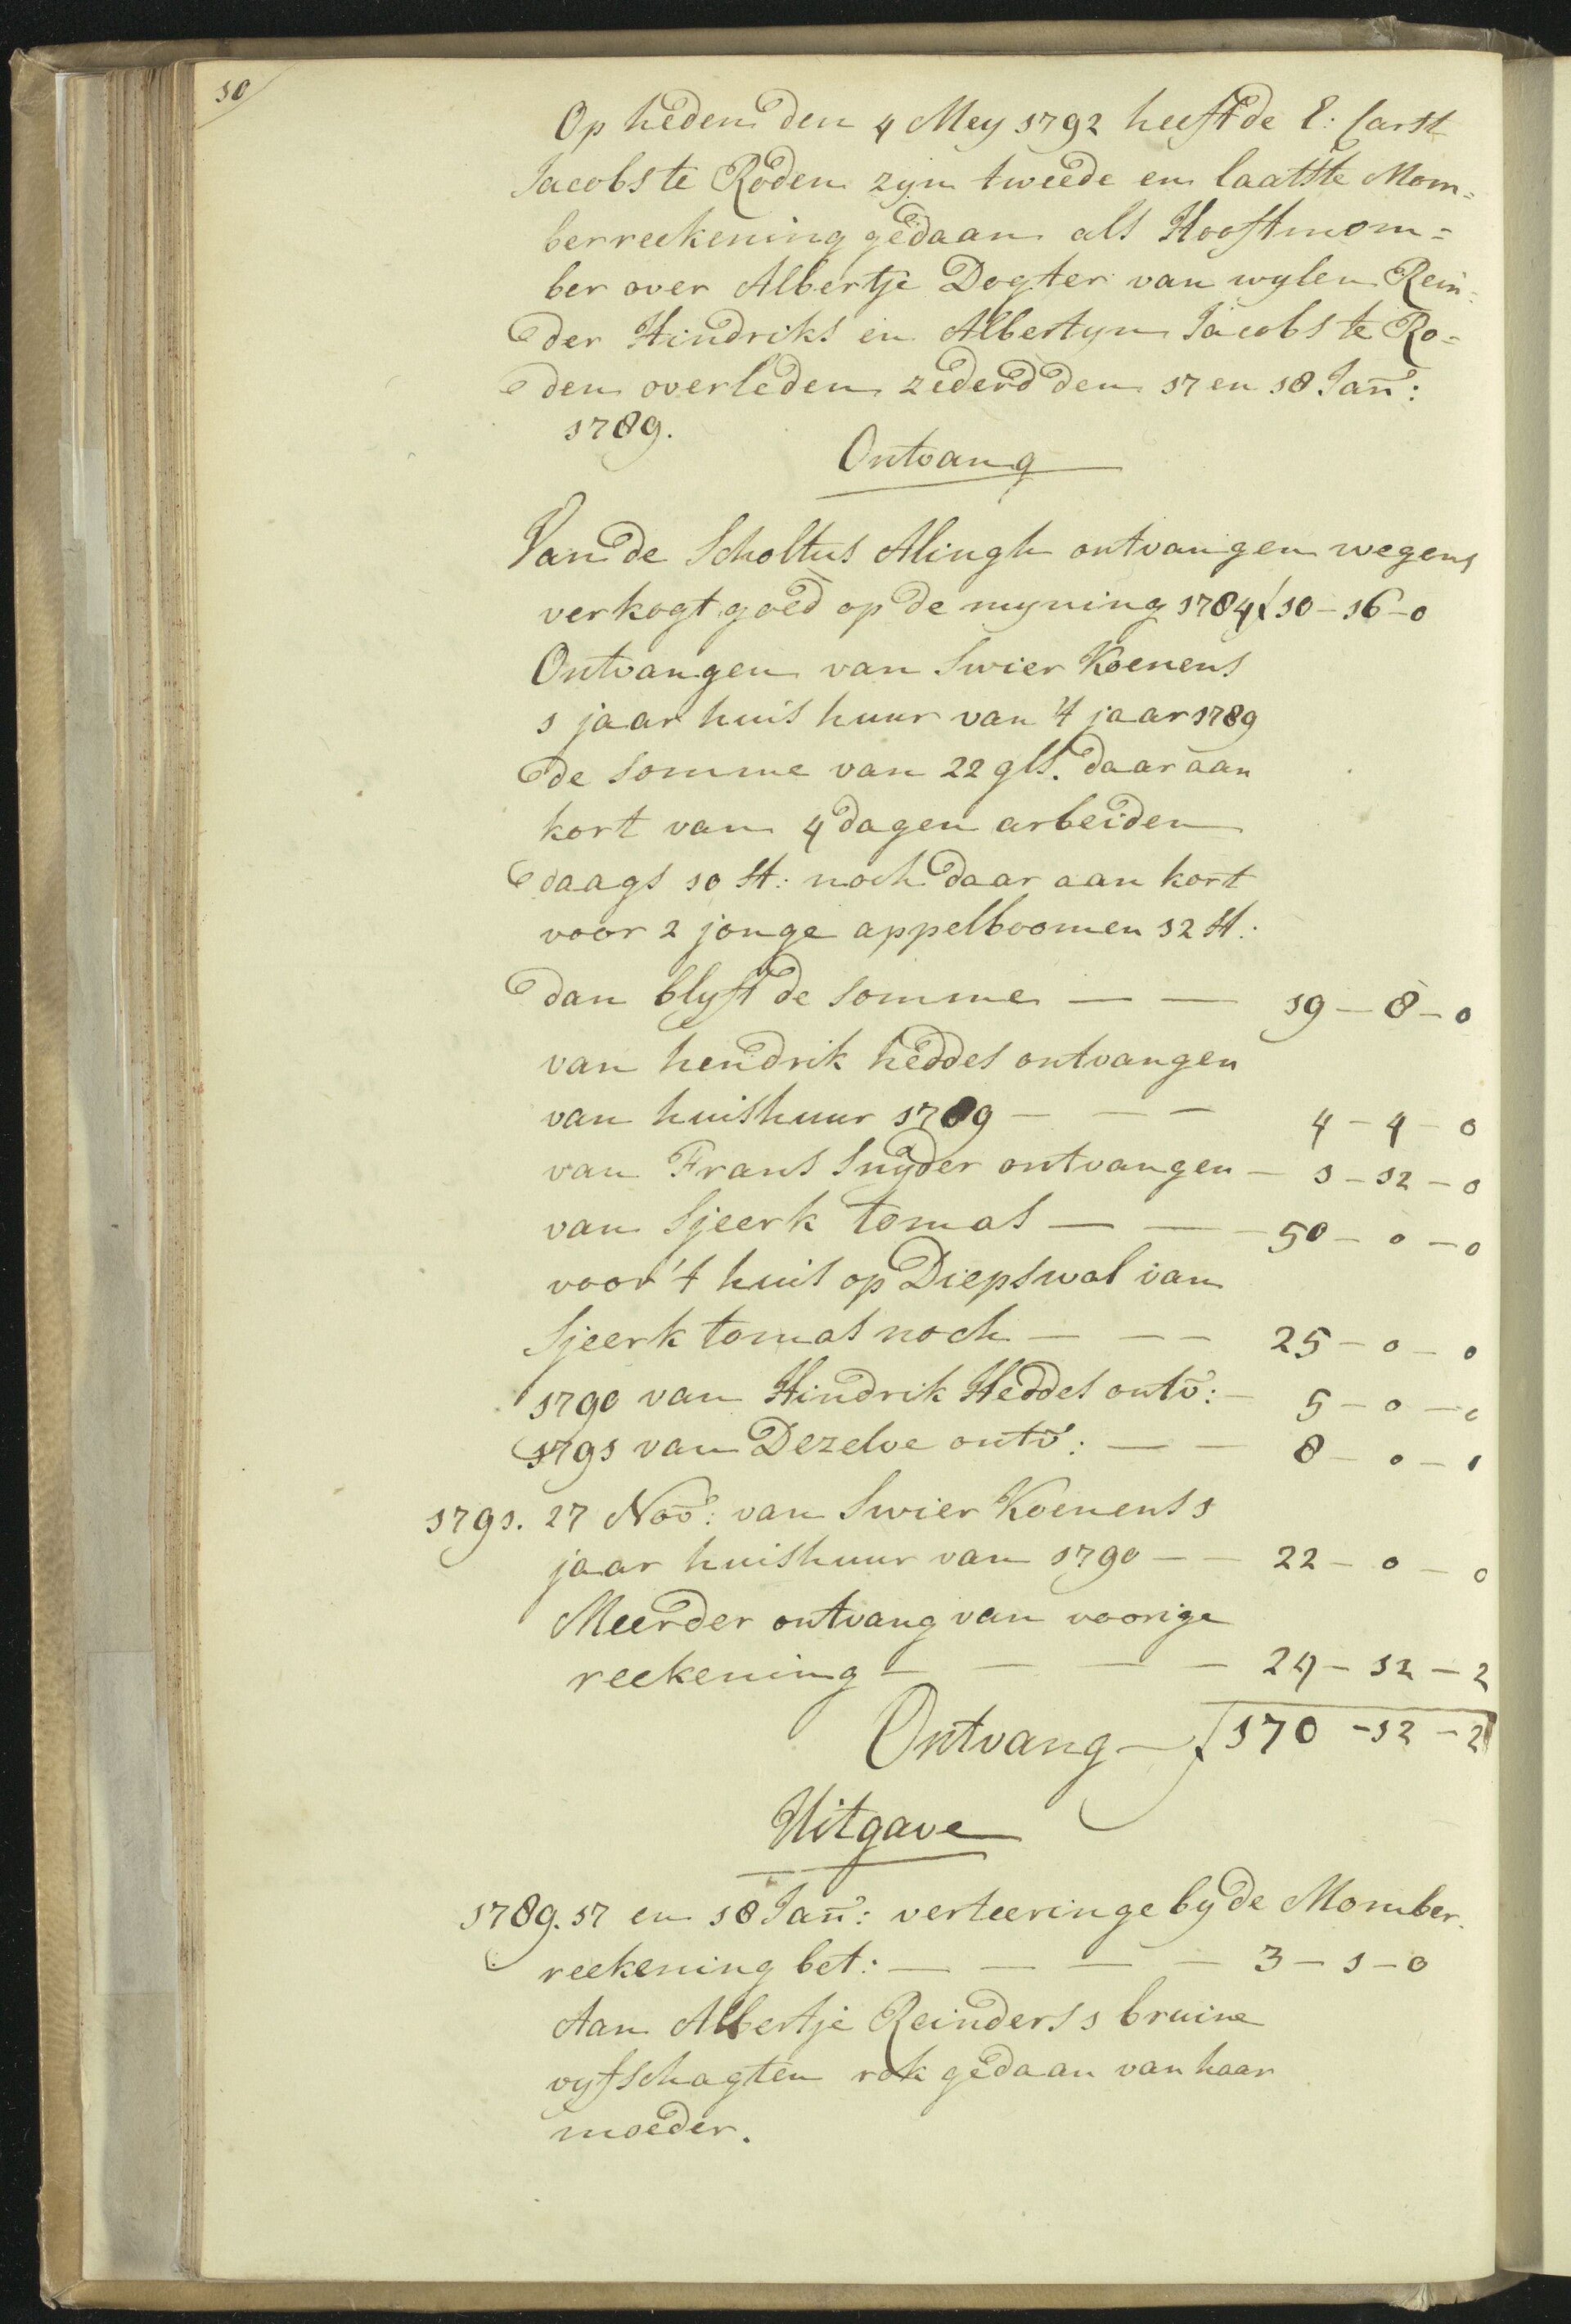 10
Op heden den 4 Mey 1792 heeft de E: Carst
Jacobs te Roden zyn tweede en laatste Mom=
berreekening gedaan als Hooftmom=
ber over Albertje Dogter van wylen Rein=
der Hindriks en Albertyn Jacobs te Ro=
den overleden zederd den 17 en 18 Jañ:
1789.
Ontvang
Van de Scholtus Alingh ontvangen wegens
verkogt goed op de myning 1784 ƒ 10-16-0
Ontvangen van Swier Koenens
1 jaar huis huur van 't jaar 1789
de somme van 22 gls. daar aan
kort van 4 dagen arbeiden
daags 10 st: noch daar aan kort
voor 2 jonge appelboomen 12 st:
dan blyft de somme — — 19-8-0
van hendrik heddes ontvangen
van huishuur 1789 — — — 4-4-0
van Frans Snyder ontvangen — 1-12-0
van Sjeerk tomas — — 50-0-0
voor 't huis op Diepswal van
Sjeerk tomas noch — — — 25-0-0
1790 van Hindrik Heddes ontv: — 5-0-0
1791 van Dezelve ontv: — — 8-0-0
1791. 27 Nov: van Swier Koenens 1
jaar huishuur van 1790 — — 22-0-0
Meerder ontvang van voorige
reekening — — — — 24-12-2
Ontvang — ƒ 170-12-2
Uitgave
1789. 17 en 18 Jañ: verteeringe by de Momber
reekening bet: — — — — 3-1-0
Aan Albertje Reinders 1 bruine
vyfschagten rok gedaan van haar
moeder.